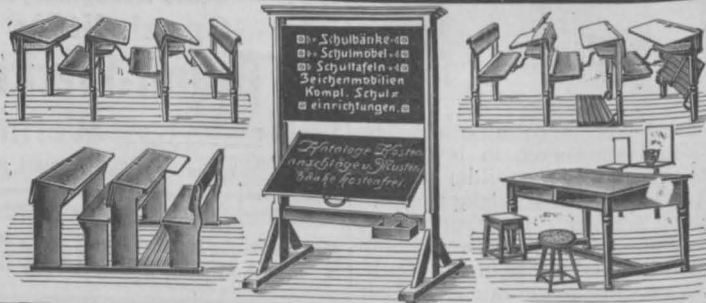 Schulbänke
Schulmöbel
Schultafeln
Zeichenmobilien
Kompl. Schul=
einrichtungen.
Kataloge Kosten
anschläge u. Muster
bänke kostenfrei.